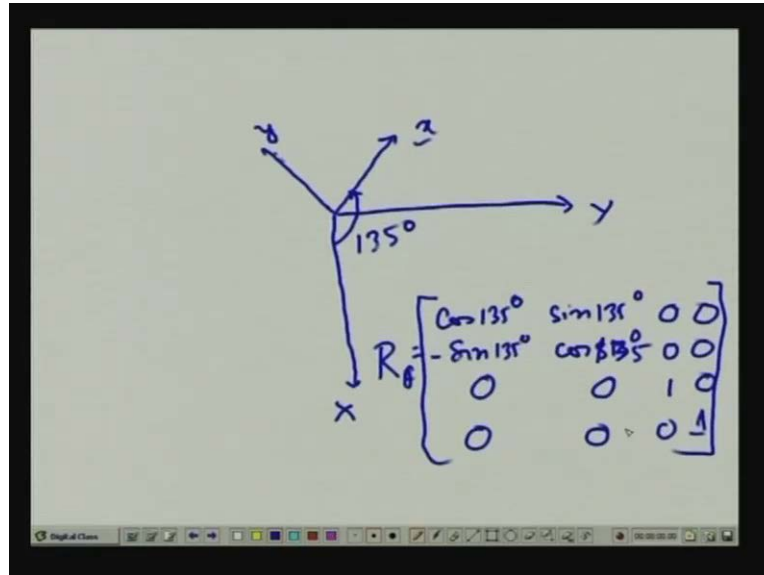 y
x
Y
135°
X
Cos 135° Sin 135° 0 0
R_θ = - Sin 135° cos 135° 0 0
0 0 1 0
0 0 0 1
Digital Class
00:00:00:00